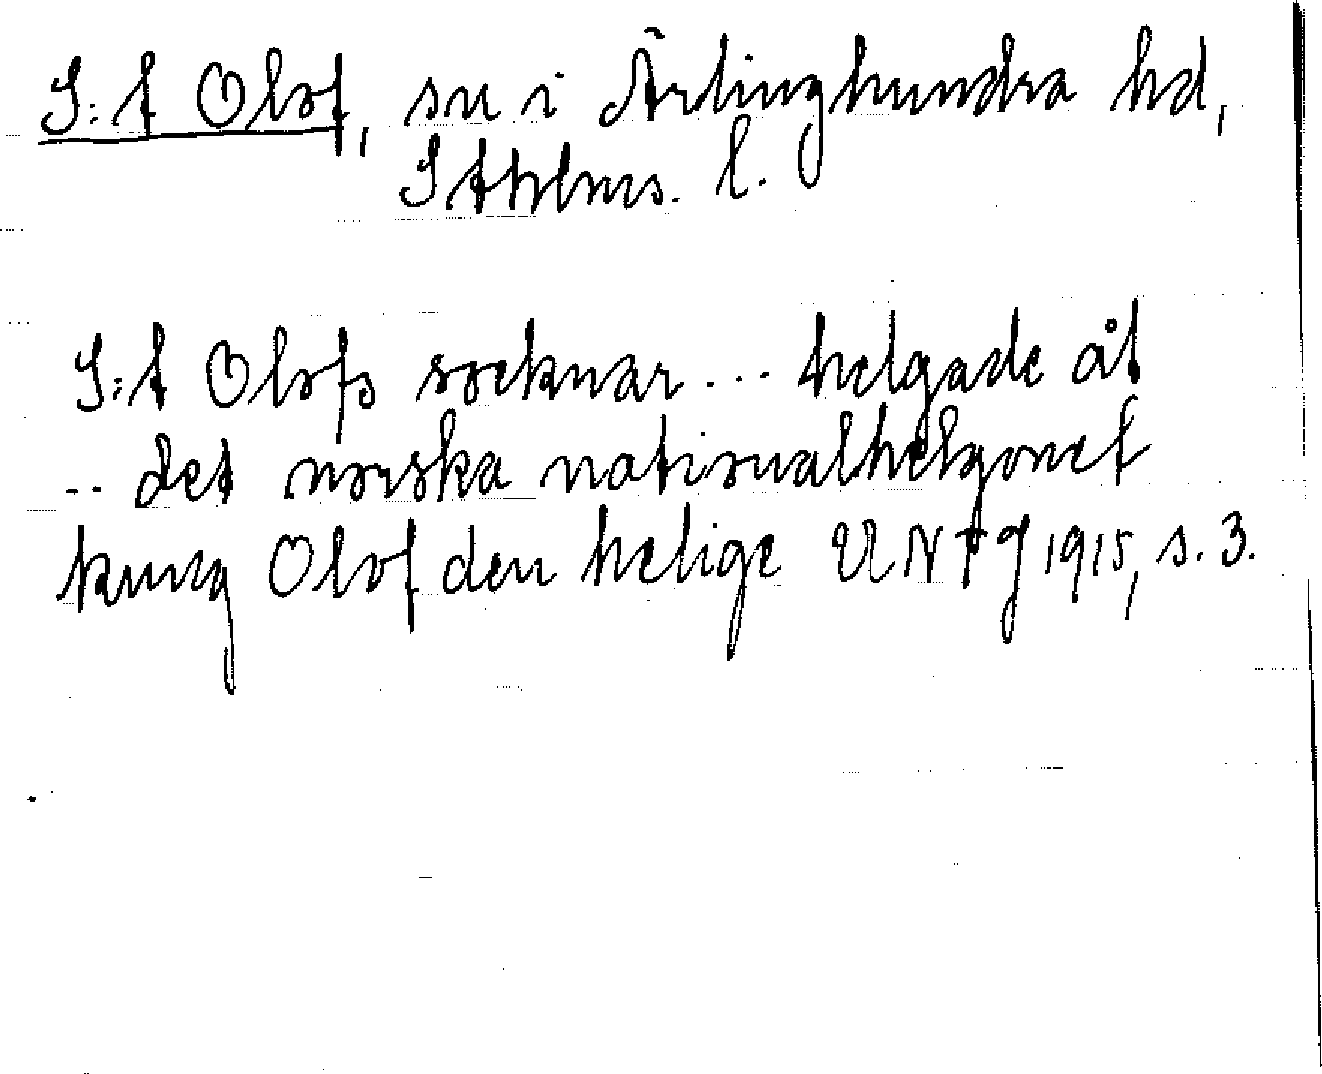 S:t Olof, sn i Ärlinghundra hd,
Sthlms. l.
S:t Olofs socknar... helgade åt
.. det norska nationalhelgonet
kung Olof den helige UNT 9/9 1915, s. 3.